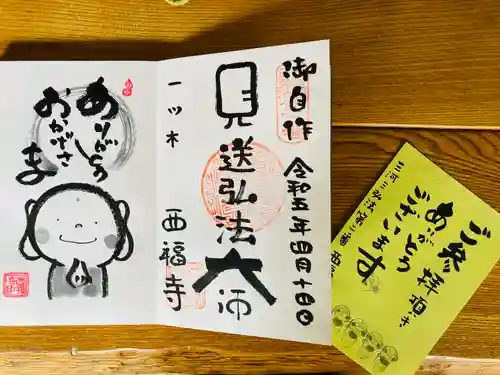 御自作
令和五年四月十四日
見送弘法大師
一ツ木
西福寺
ありがとう
おかげさま
三河三弘法第二番 西
ご参拝頂き
ありがとう
ございます